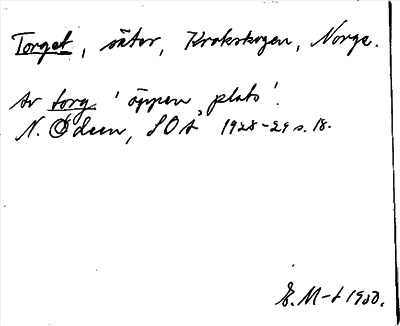 Torget, säter, Krokskogen, Norge.
Av torg 'öppen plats'.
N. Ödeen, SOÅ 1928-29 s. 18.
E. M-t 1950.